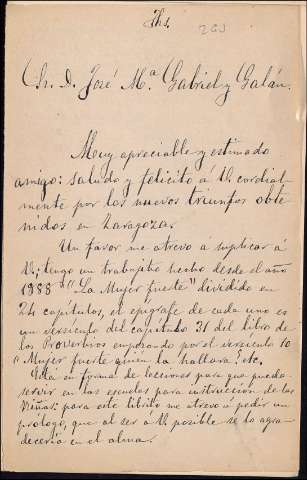 Jhs.
203
Sr. D. José M.ª Gabriel y Galán.
Muy apreciable y estimado
amigo: saludo y felicito á V. cordial-
mente por los nuevos triunfos obte
nidos en Zaragoza.
Un favor me atrevo á suplicar á
V.; tengo un trabajito hecho desde el año
1888 "La Mujer fuerte" dividido en
24 capítulos, el epígrafe de cada uno es
un versículo del capítulo 31 del libro de
los Proverbios empezando por el versículo 10
"Mujer fuerte quién la hallará", etc.
Está en forma de lecciones para que pueda
servir en las escuelas para instrucción de las
Niñas: para este librito me atrevo á pedir un
prólogo, que al ser á V. posible se lo agra-
decería en el alma.